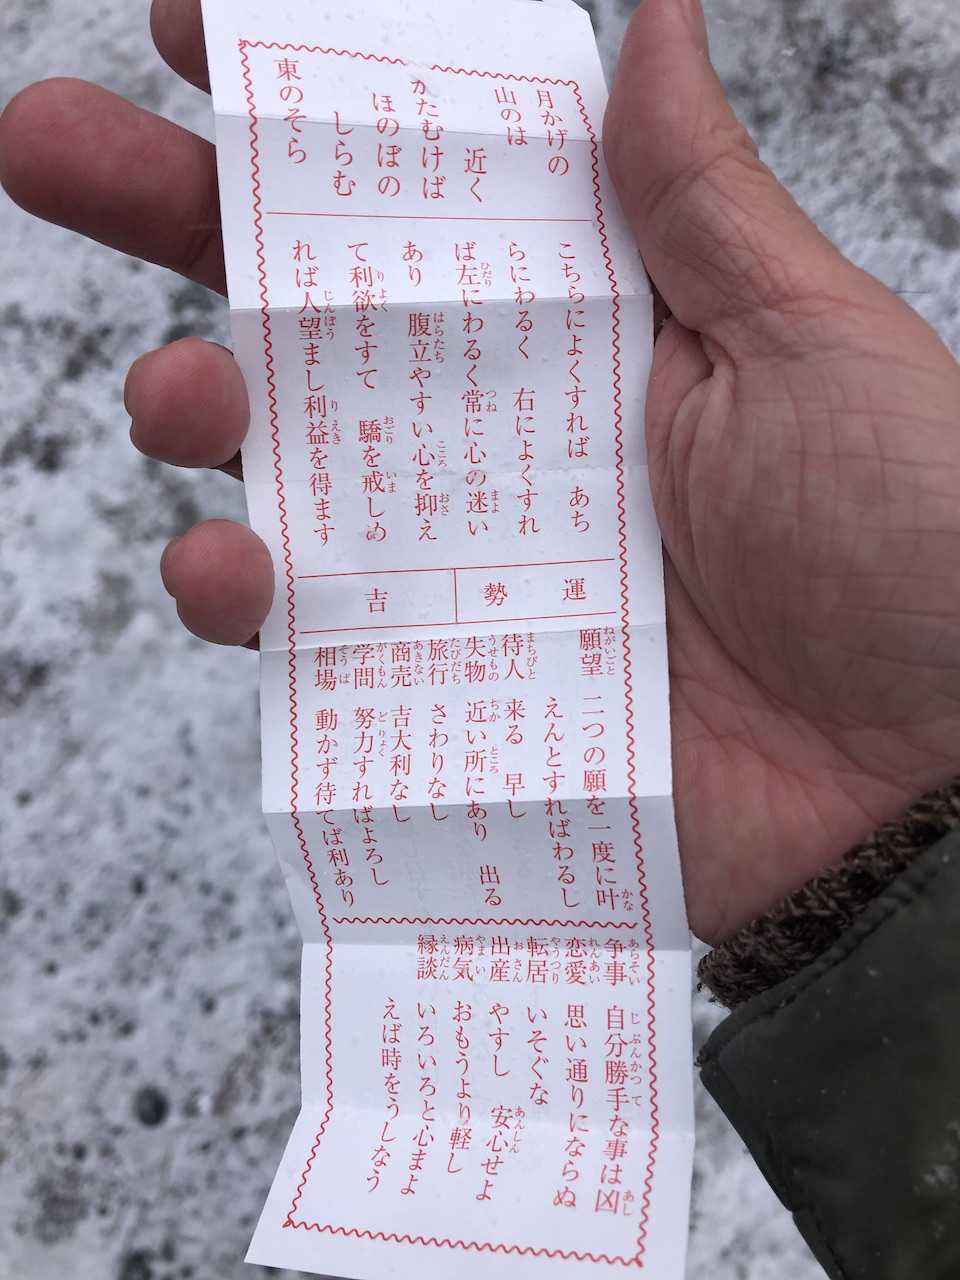 月かげの
山のは
近く
かたむけば
ほのぼの
しらむ
東のそら
こちらによくすれば　あち
らにわるく　右によくすれ
ば左にわるく常に心の迷い
あり　腹立やすい心を抑え
て利欲をすて　驕を戒しめ
れば人望まし利益を得ます
運勢　吉
願望　二つの願を一度に叶
えんとすればわるし
待人　来る　早し
失物　近い所にあり　出る
旅行　さわりなし
商売　吉大利なし
学問　努力すればよろし
相場　動かず待てば利あり
争事　自分勝手な事は凶
恋愛　思い通りにならぬ
転居　いそぐな
出産　やすし　安心せよ
病気　おもうより軽し
縁談　いろいろと心まよ
えば時をうしなう